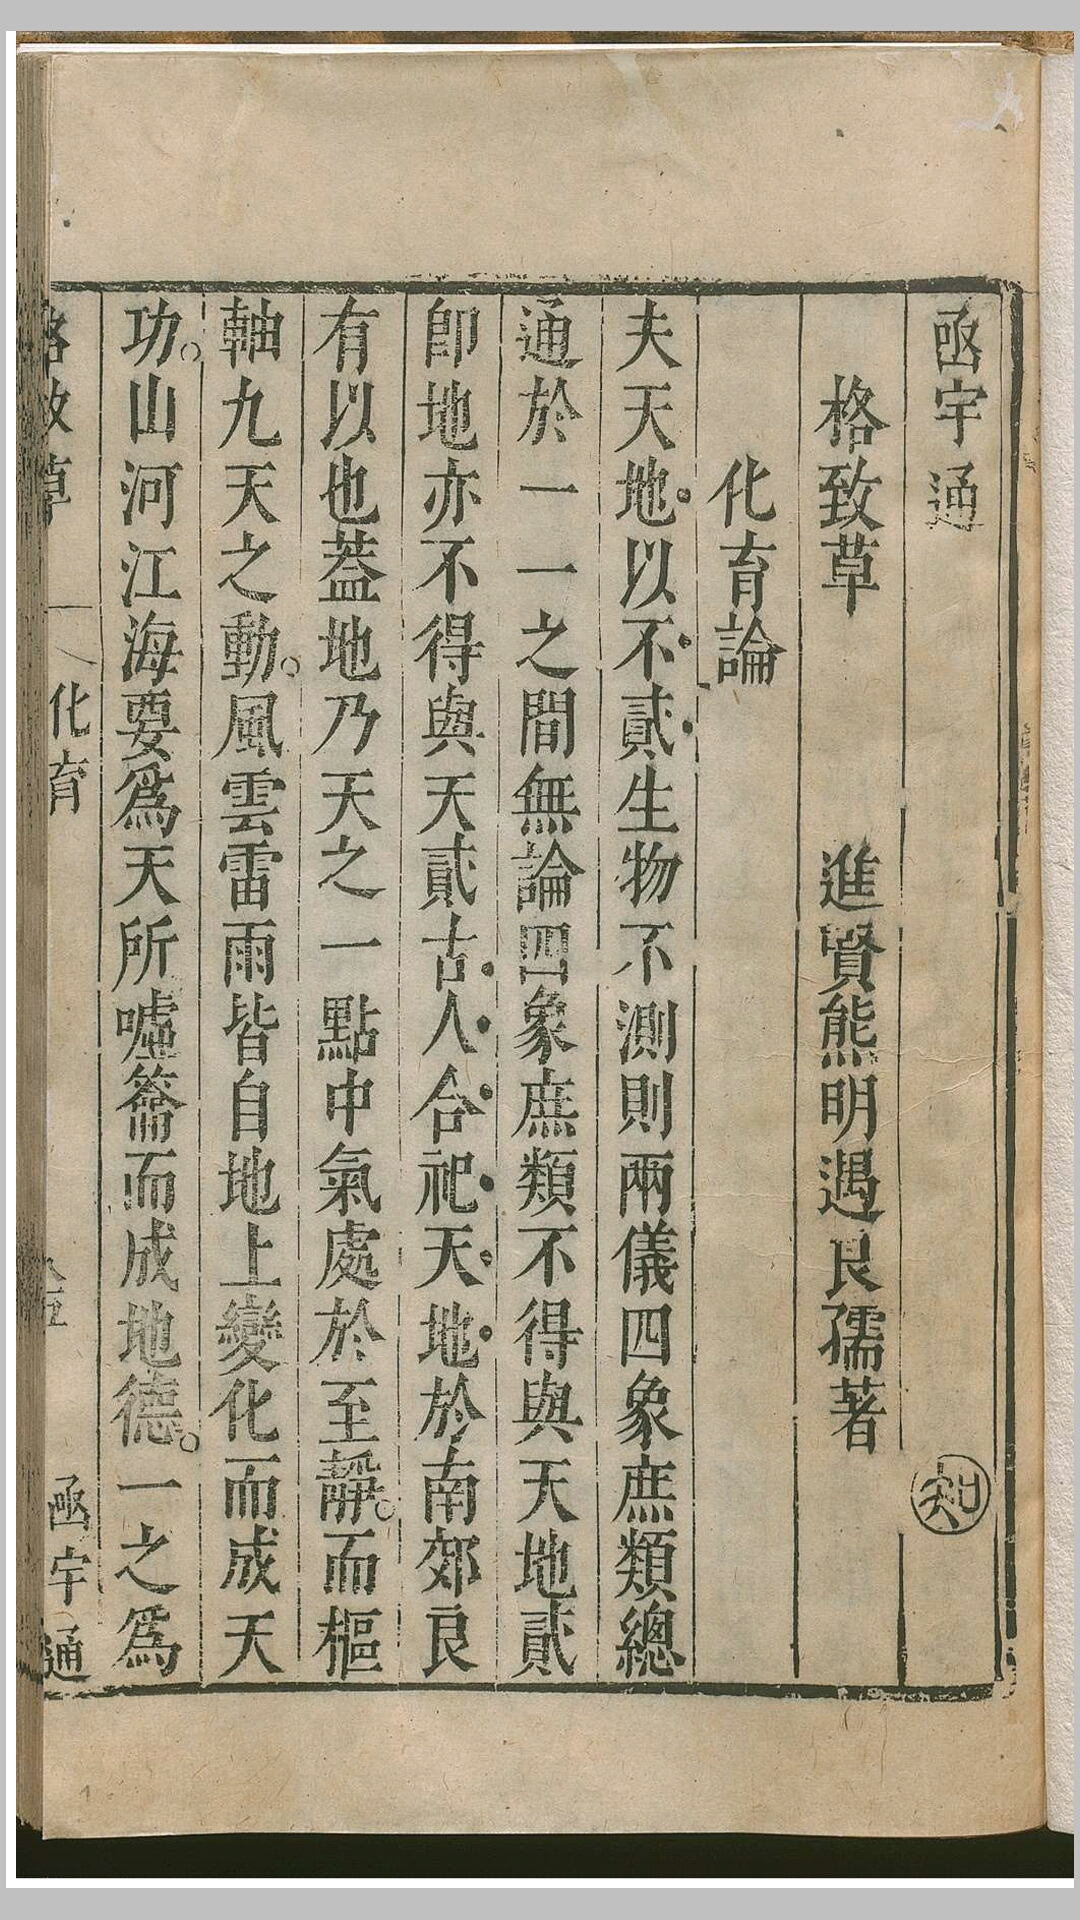 函宇通
格致草　進賢熊明遇良孺著
化育論
夫天地以不貳生物不測則兩儀四象庶類總
通於一一之間無論四象庶類不得與天地貳
卽地亦不得與天貳古人合祀天地於南郊良
有以也葢地乃天之一點中氣處於至靜。而樞
軸九天之動。風雲雷雨皆自地上變化而成天
功。山河江海要爲天所噓籥而成地德。一之爲
格致草　化育　函宇通